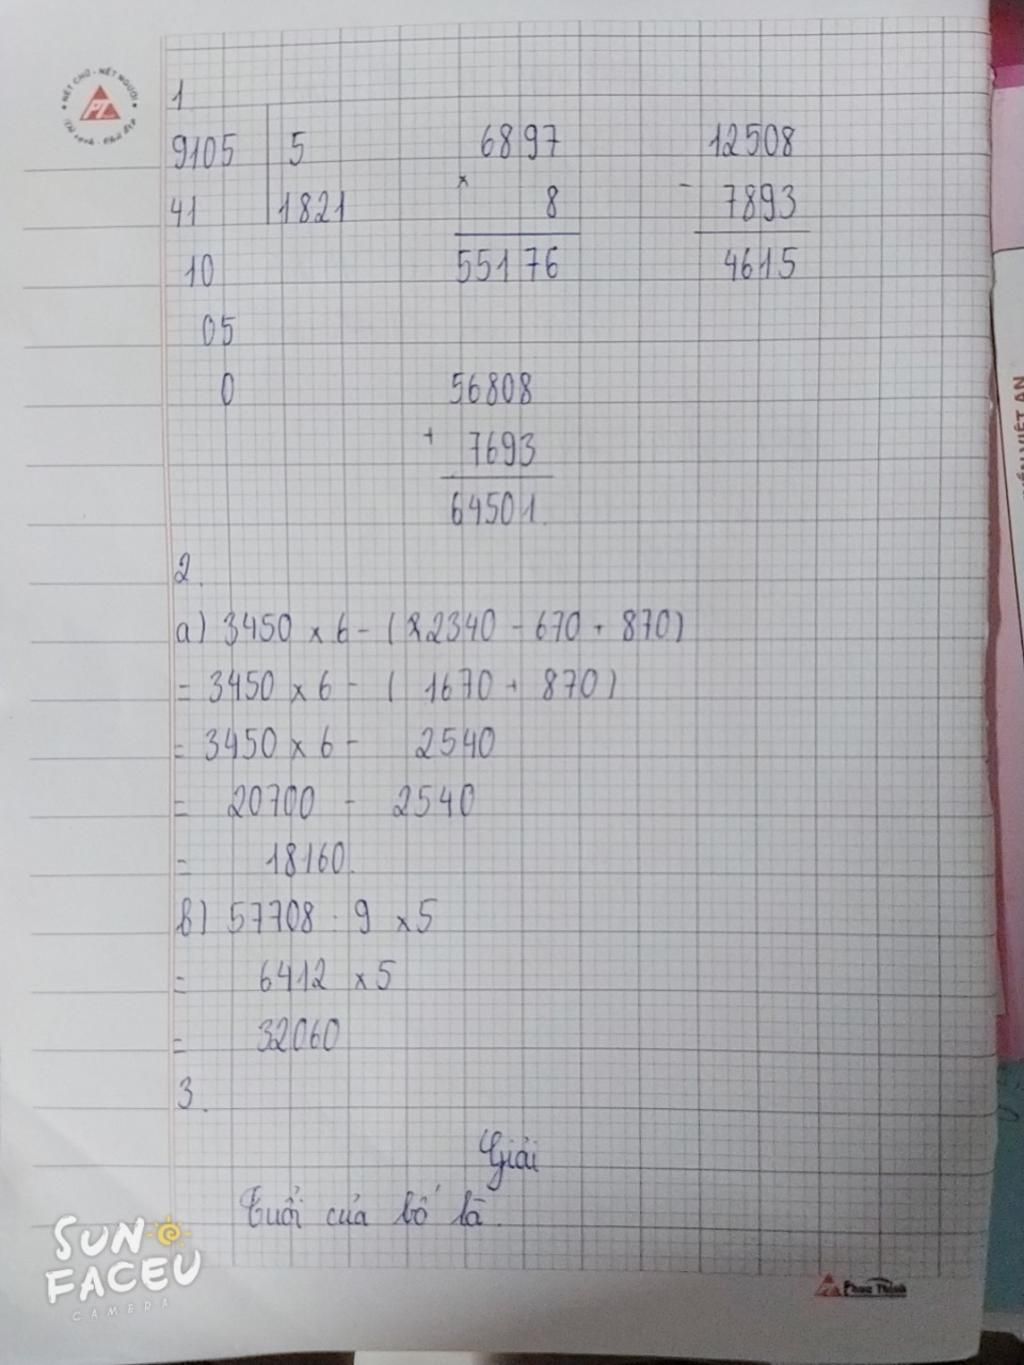 NÉT CHỮ - NẾT NGƯỜI
PT
1
9105 5 6897 12508
41 1821 × 8 - 7893
10 55176 4615
05
0 56808
+ 7693
64501
2.
a) 3450 × 6 - ( 2340 - 670 + 870)
= 3450 × 6 - ( 1670 + 870)
= 3450 × 6 - 2540
= 20700 - 2540
= 18160.
b) 57708 : 9 × 5
= 6412 × 5
= 32060
3.
Giải
Tuổi của bố là.
SUN
FACEU
CAMERA
Phuc Thịnh
VIỆT AN